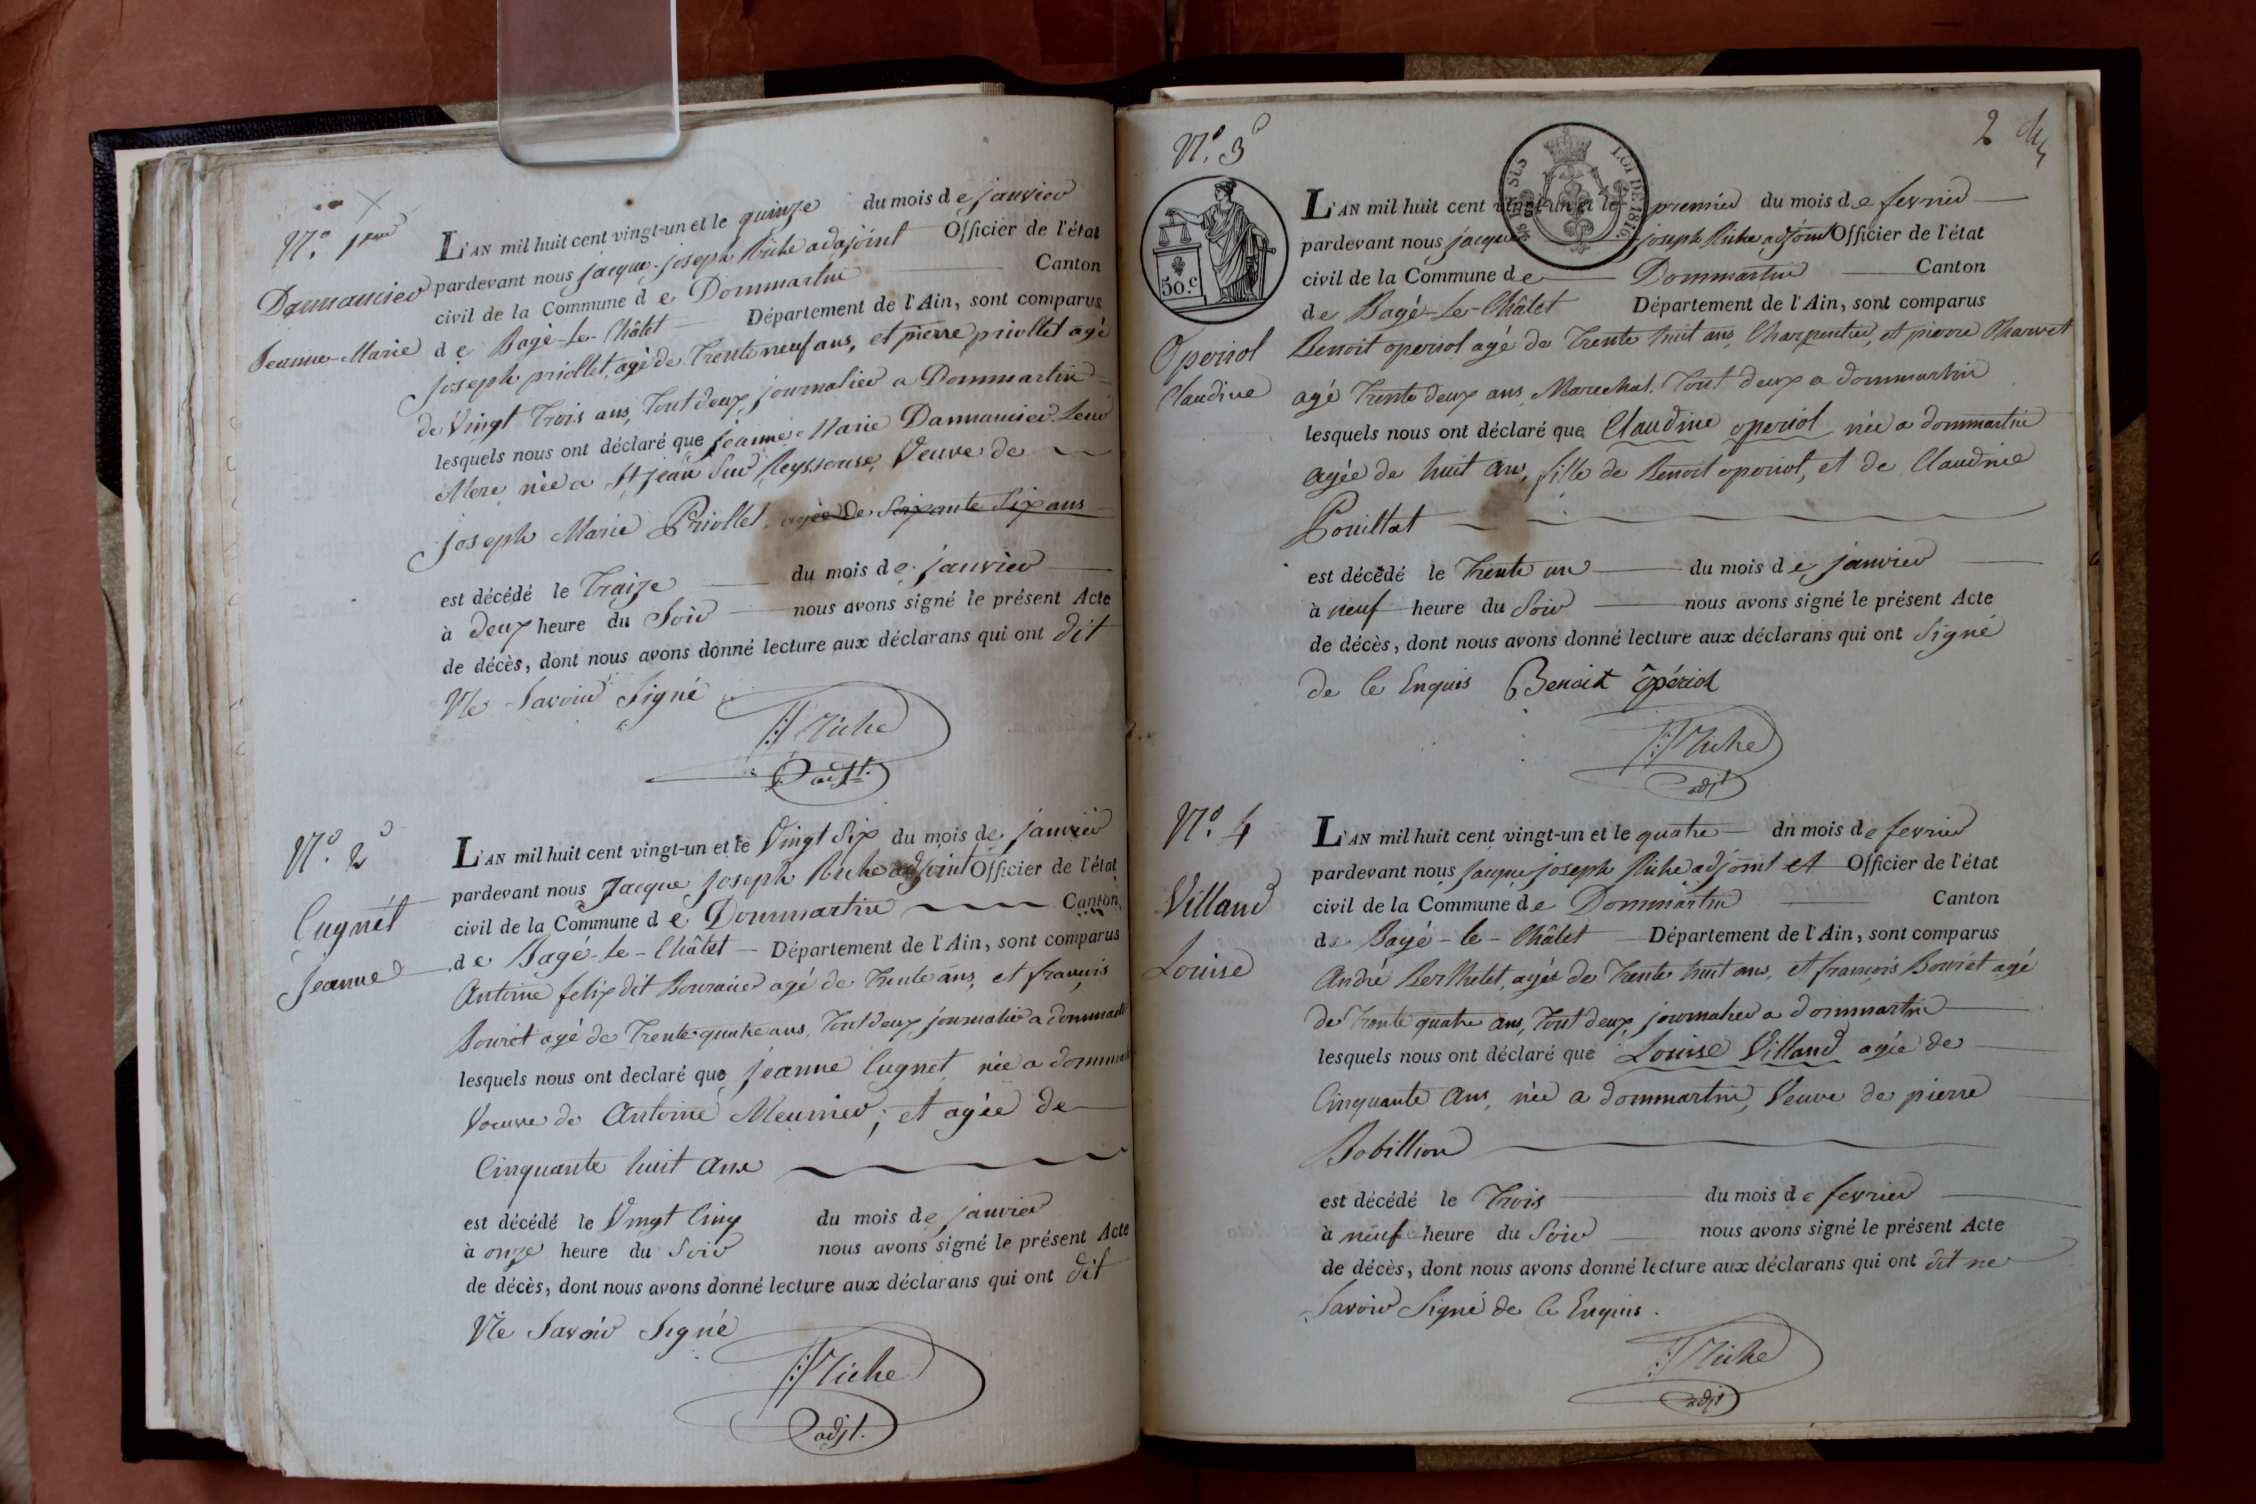 N.° 1er
Dannancier
Jeanne-Marie
L'AN mil huit cent vingt-un et le quinze du mois de janvier
pardevant nous jacque-joseph Riche adajoint Officier de l'état
civil de la Commune de Dommartin Canton
de Bagé-Le-Châlet Département de l'Ain, sont comparus
joseph priollet, agé de Trente neuf ans, et pierre priollet agé
de Vingt Trois ans, Tout deux journalier a Dommartin
lesquels nous ont déclaré que jeanne Marie Dannancier Leur
Mere née a St jean Sur Reyssouse, Veuve de
joseph Marie Priollet agée De Soixante Six ans
est décédé le Traize du mois de janvier
à deux heure du Soir nous avons signé le présent Acte
de décès, dont nous avons donné lecture aux déclarans qui ont dit
Ne Savoir Signé
Riche
adjt.
N.° 2
Cugnét
Jeanne
L'AN mil huit cent vingt-un et le Vingt Six du mois de janvier
pardevant nous Jacque joseph Riche adjoint Officier de l'état
civil de la Commune de Dommartin Canton
de Bagé-le-Châlet Département de l'Ain, sont comparus
Antoine felix dit agé de Trente ans, et françois
Bouret agé de Trente quatre ans, Tout deux journalier a dommartin
lesquels nous ont declaré que jeanne Cugnet née a
Voeuve de Antoine Meunier; et agée de
Cinquante huit ans
est décédé le Vingt Cinq du mois de janvier
à onze heure du Soir nous avons signé le présent Acte
de décès, dont nous avons donné lecture aux déclarans qui ont dit
Ne Savoir Signé
Riche
adjt.
2
N.° 3
50.c
LOI DE 1816.
Operiol
Claudine
L'AN mil huit cent vingt-un et le premier du mois de fevrier
pardevant nous jacque joseph Riche adjoint Officier de l'état
civil de la Commune de Dommartin Canton
de Bagé-Le-Châlet Département de l'Ain, sont comparus
Benoit operiol agé de Trente huit ans, Charpentier, et pierre Charvet
agé Trente deux ans, Marechal. Tout deux a dommartin
lesquels nous ont déclaré que Claudine operiol née a dommartin
agée de huit ans, fille de Benoit operiol, et de Claudine
Pouillat
est décédé le Trente un du mois de janvier
à neuf heure du Soir nous avons signé le présent Acte
de décès, dont nous avons donné lecture aux déclarans qui ont Signé
de Ce Enquis Benoit ôpériol
Riche
adjt
N.° 4
Villand
Louise
L'AN mil huit cent vingt-un et le quatre dn mois de fevrier
pardevant nous jacque joseph Riche adjoint et Officier de l'état
civil de la Commune de Dommartin Canton
de Bagé-le-Châlet Département de l'Ain, sont comparus
André Berthelet, agée de Trente huit ans, et françois Bouret agé
de Trente quatre ans, Tout deux journalier a dommartin
lesquels nous ont déclaré que Louise Villand agée de
Cinquante Ans, née a dommartin, Veuve de pierre
Bobillion
est décédé le Trois du mois de fevrier
à neuf heure du Soir nous avons signé le présent Acte
de décès, dont nous avons donné lecture aux déclarans qui ont dit ne
Savoir Signé de Ce Enquis.
Riche
adjt